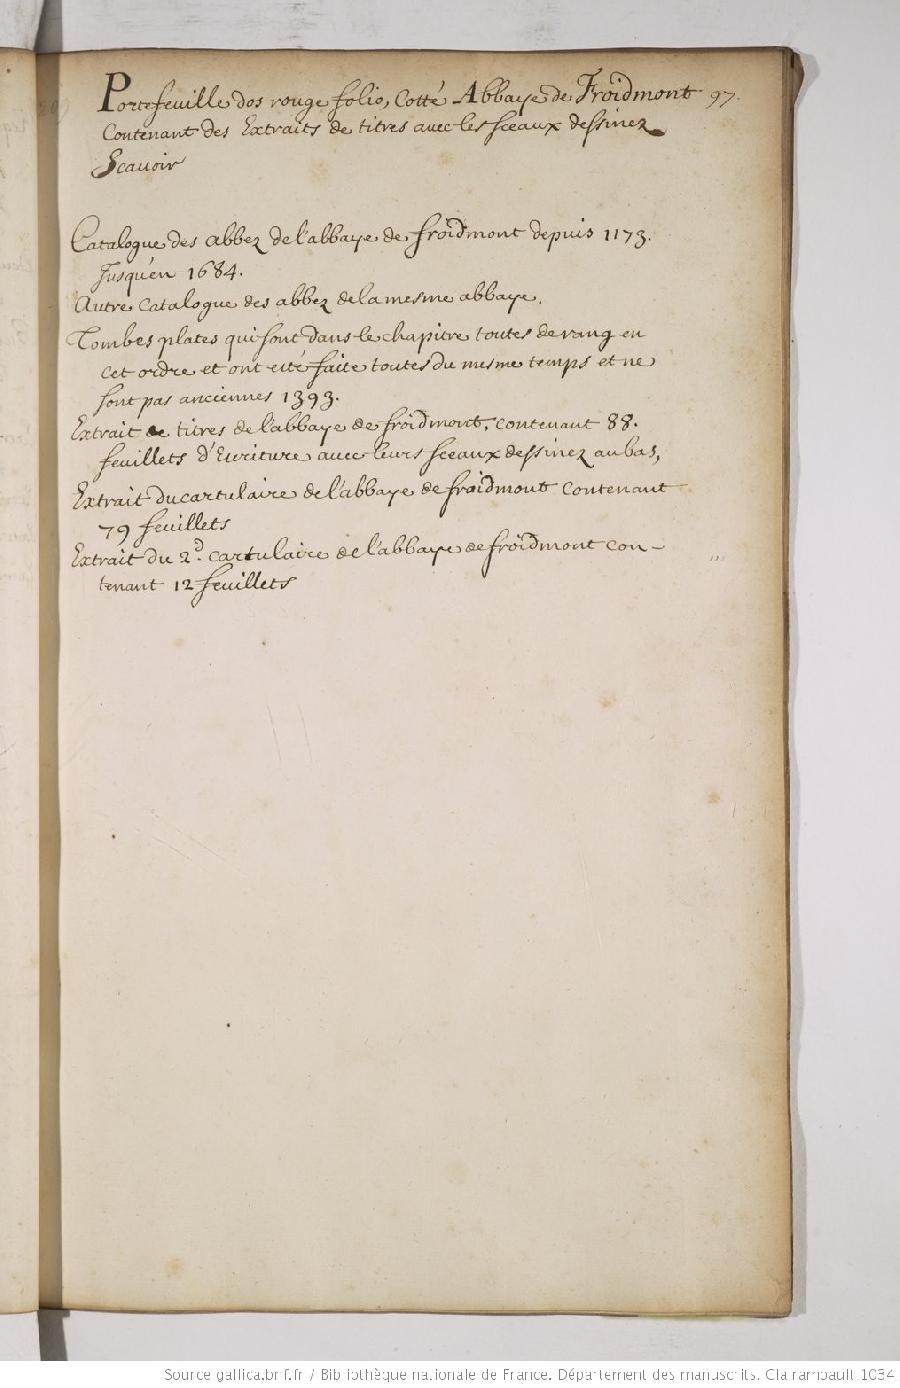 Portefeuille dos rouge folio, Cotté Abbaye de Froidmont 97.
Contenant des Extraits de titres avec les sceaux dessinez
Scavoir
Catalogue des abbez de l'abbaye de froidmont depuis 1173.
Jusqu'en 1684.
Autre Catalogue des abbez de la mesme abbaye.
Tombes plates qui sont dans le chapitre toutes de rang en
cet ordre et ont eité faite toutes du mesme temps et ne
sont pas anciennes 1393.
Extrait de titres de l'abbaye de froidmont. contenant 88.
feuillets d'Ecriture avec leurs sceaux dessinez au bas,
Extrait du cartulaire de l'abbaye de froidmont contenant
79 feuillets
Extrait du 2.d cartulaire de l'abbaye de froidmont con-
tenant 12 feuillets
Source gallica.bnf.fr / Bibliothèque nationale de France. Département des manuscrits. Clairambault 1034